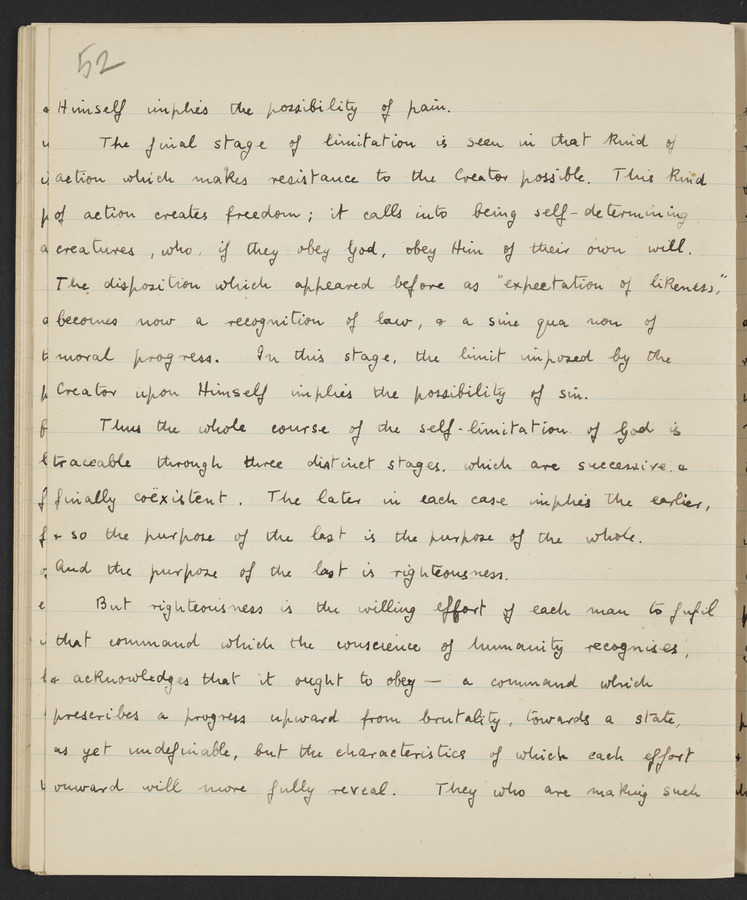 52
Himself implies the possibility of pain.
The final stage of limitation is seen in that kind of
action which makes resistance to the Creator possible. This kind
of action creates freedom; it calls into being self-determining
creatures, who, if they obey God, obey Him of their own will.
The disposition which appeared before as "expectation of likeness,"
becomes now a recognition of law, & a sine qua non of
moral progress. In this stage, the limit imposed by the
Creator upon Himself implies the possibility of sin.
Thus the whole course of the self-limitation of God is
traceable through three distinct stages, which are successive, &
finally coëxistent. The later in each case implies the earlier,
& so the purpose of the last is the purpose of the whole.
And the purpose of the last is righteousness.
But righteousness is the willing effort of each man to fulfil
that command which the conscience of humanity recognises,
& acknowledges that it ought to obey — a command which
prescribes a progress upward from brutality, towards a state,
as yet undefinable, but the characteristics of which each effort
onward will more fully reveal. They who are making such